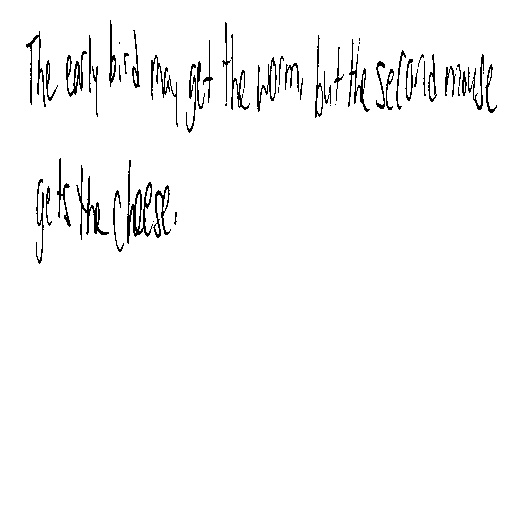 The early bird may get the worm but the second mouse
gets the cheese.